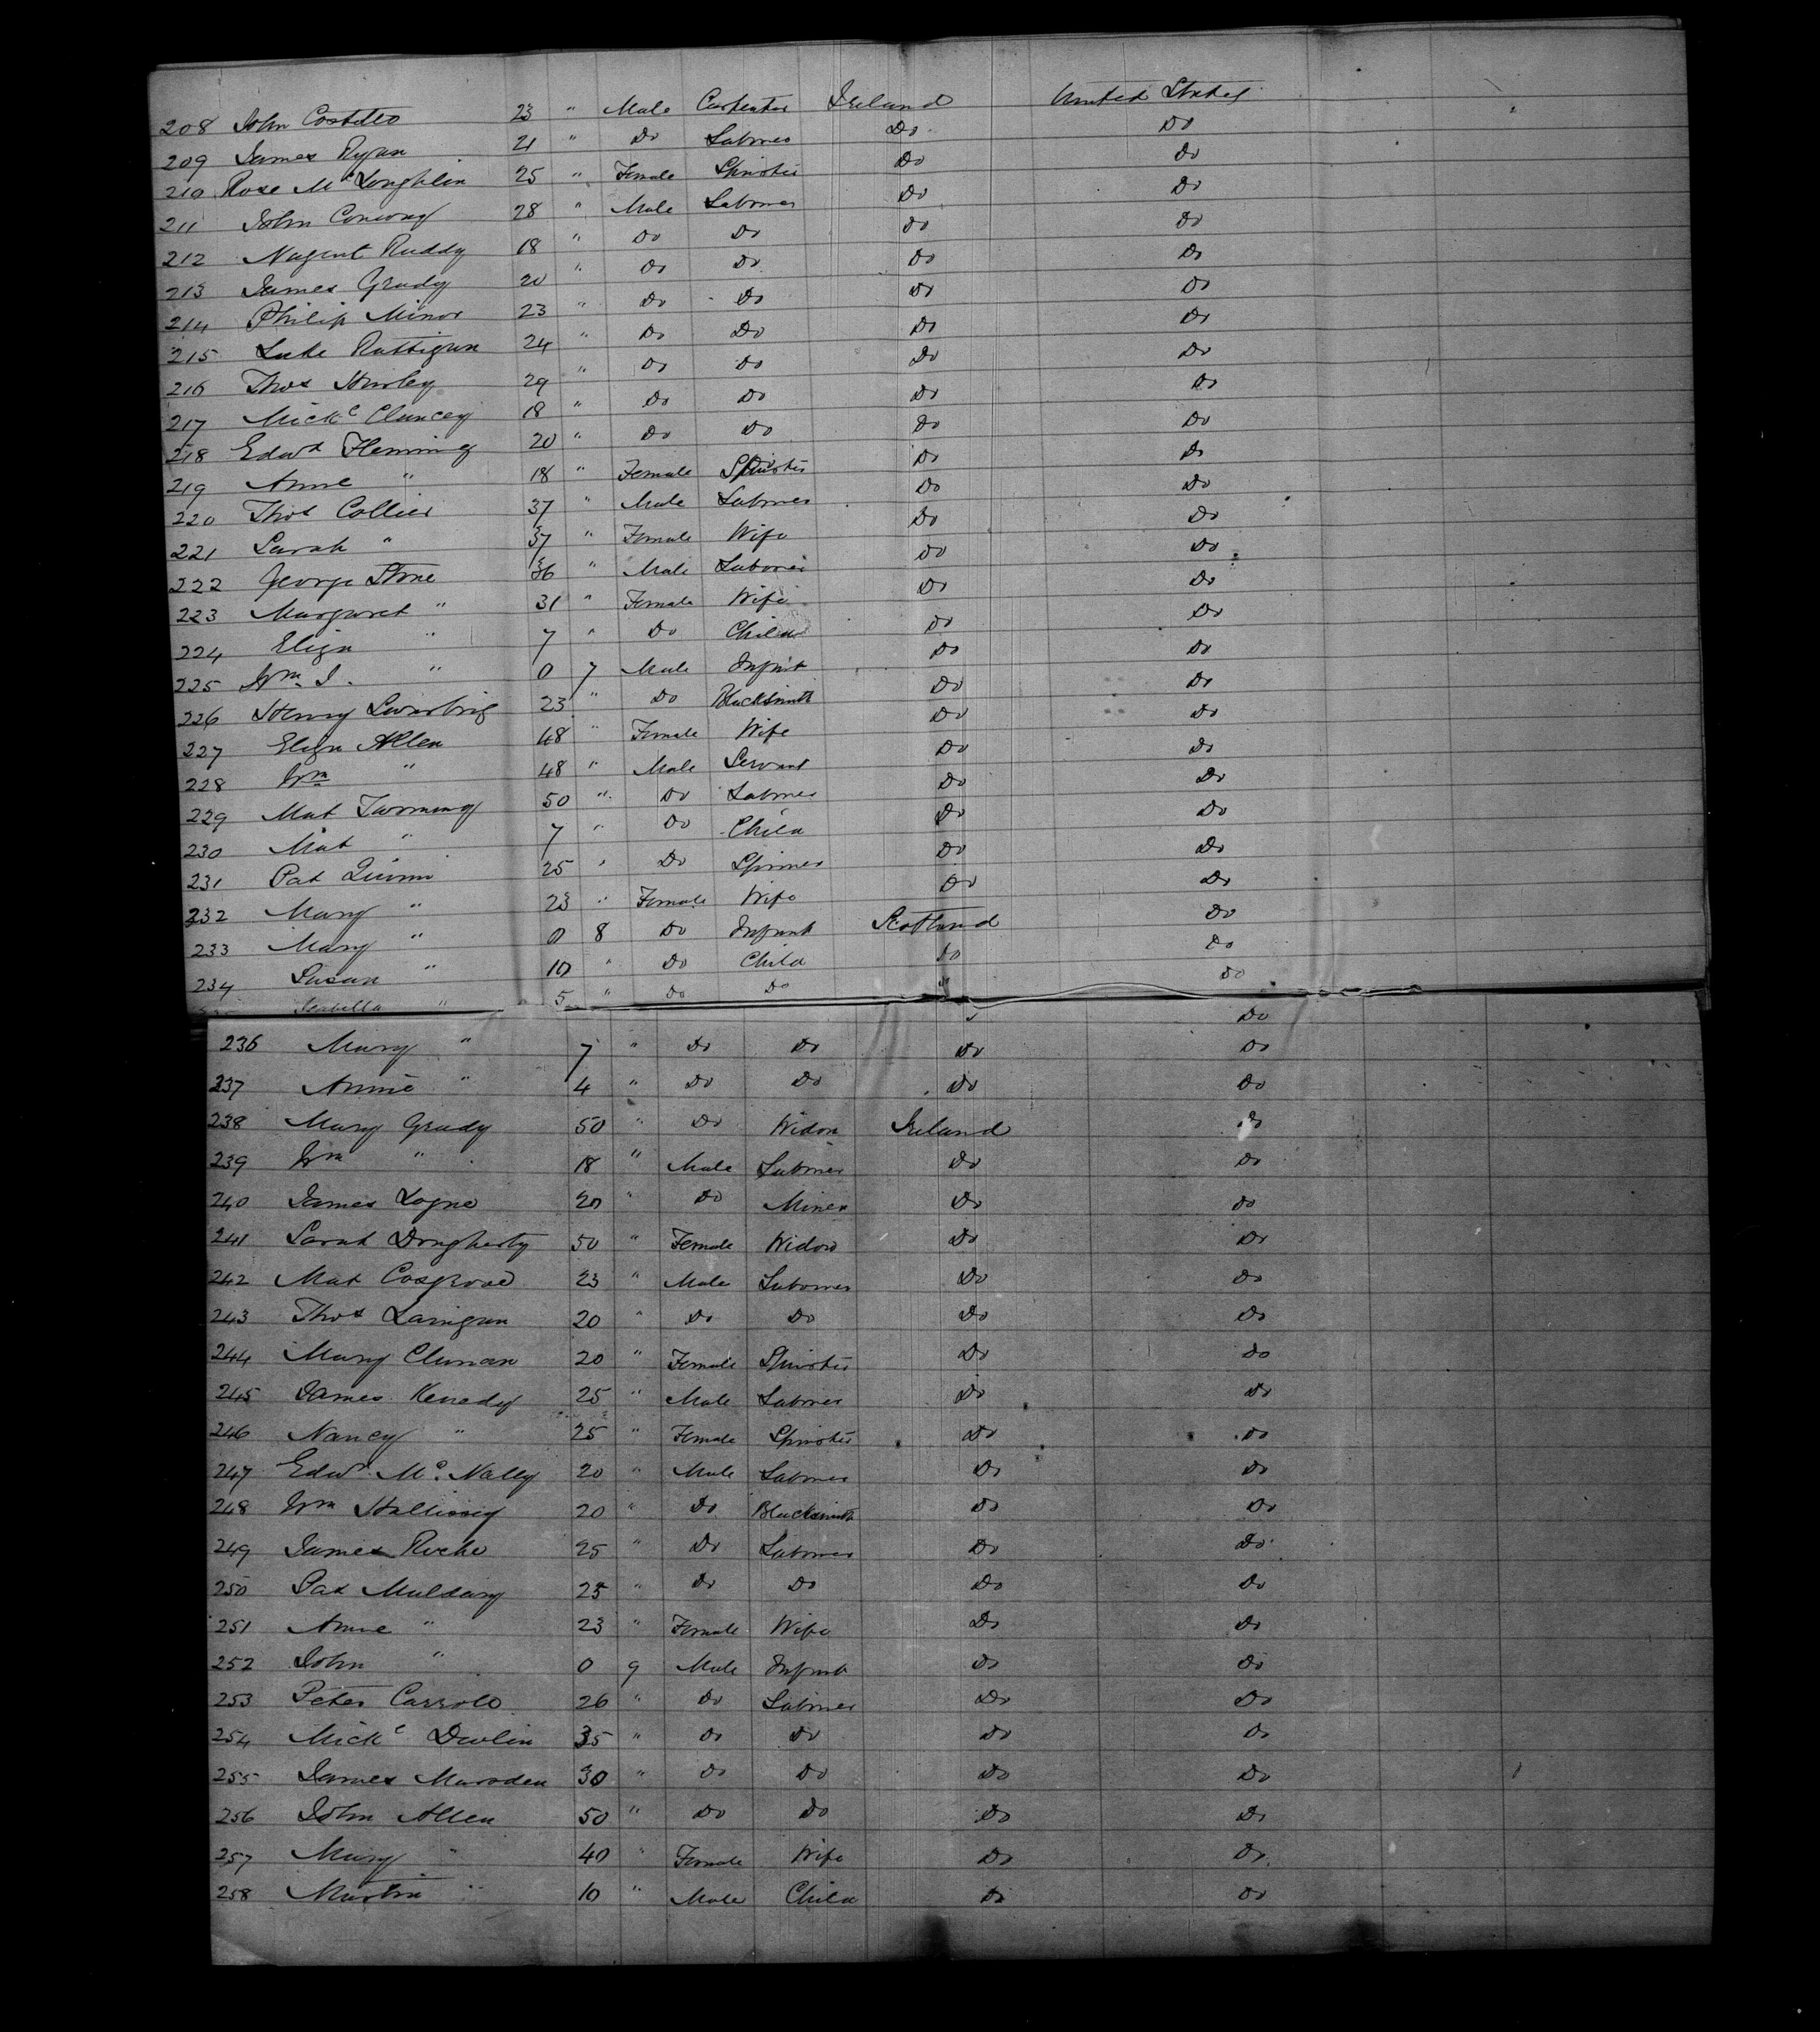 208 John Costello 23 " Male Carpenter Ireland United States
209 James Ryan 21 " Do Laborer Do Do
210 Rose McLoughlin 25 " Female Spinster Do Do
211 John Conway 28 " Male Laborer Do Do
212 Nugent Ruddy 18 " Do Do Do Do
213 James Grady 20 " Do Do Do Do
214 Philip Minor 23 " Do Do Do Do
215 Luke Rattigan 24 " Do Do Do Do
216 Thos Hurley 29 " Do Do Do Do
217 Mick Clancey 18 " Do Do Do Do
218 Edwd Fleming 20 " Do Do Do Do
219 Anne " 18 " Female Spinster Do Do
220 Thos Collier 37 " Male Laborer Do Do
221 Sarah " 37 " Female Wife Do Do
222 George Stone 36 " Male Laborer Do Do
223 Margaret " 31 " Female Wife Do Do
224 Eliza " 7 " Do Child Do Do
225 Wm J. " 0 7 Male Infant Do Do
226 Henry 23 " Do Blacksmith Do Do
227 Eliza Allen 48 " Female Wife Do Do
228 Wm " 48 " Male Servant Do Do
229 Mat 50 " Do Laborer Do Do
230 Mat " 7 " Do Child Do Do
231 Pat Quinn 25 " Do Do Do
232 Mary " 23 " Female Wife Do Do
233 Mary " 0 8 Do Infant Scotland Do
234 Susan " 10 " Do Child Do Do
Isabella " 5 " Do Do " Do
Do
236 Mary " 7 " Do Do Do Do
237 Annie " 4 " Do Do Do Do
238 Mary Grady 50 " Do Widow Ireland Do
239 Wm " 18 " Male Laborer Do Do
240 James Logue 20 " Do Miner Do Do
241 Sarah Dougherty 50 " Female Widow Do Do
242 Mat Cosgrove 23 " Male Laborer Do Do
243 Thos Lanigan 20 " Do Do Do Do
244 Mary Clunan 20 " Female Spinster Do Do
245 James Kenedy 25 " Male Laborer Do Do
246 Nancy " 25 " Female Spinster Do Do
247 Edwd McNally 20 " Male Laborer Do Do
248 Wm Hallissey 20 " Do Blacksmith Do Do
249 James Roche 25 " Do Laborer Do Do
250 Pat Muldary 25 " Do Do Do Do
251 Anne " 23 " Female Wife Do Do
252 John " 0 9 Male Infant Do Do
253 Peter Carroll 26 " Do Laborer Do Do
254 Mick Devlin 35 " Do Do Do Do
255 James Marsden 30 " Do Do Do Do
256 John Allen 50 " Do Do Do Do
257 Mary " 40 " Female Wife Do Do
258 Martin " 10 " Male Child Do Do